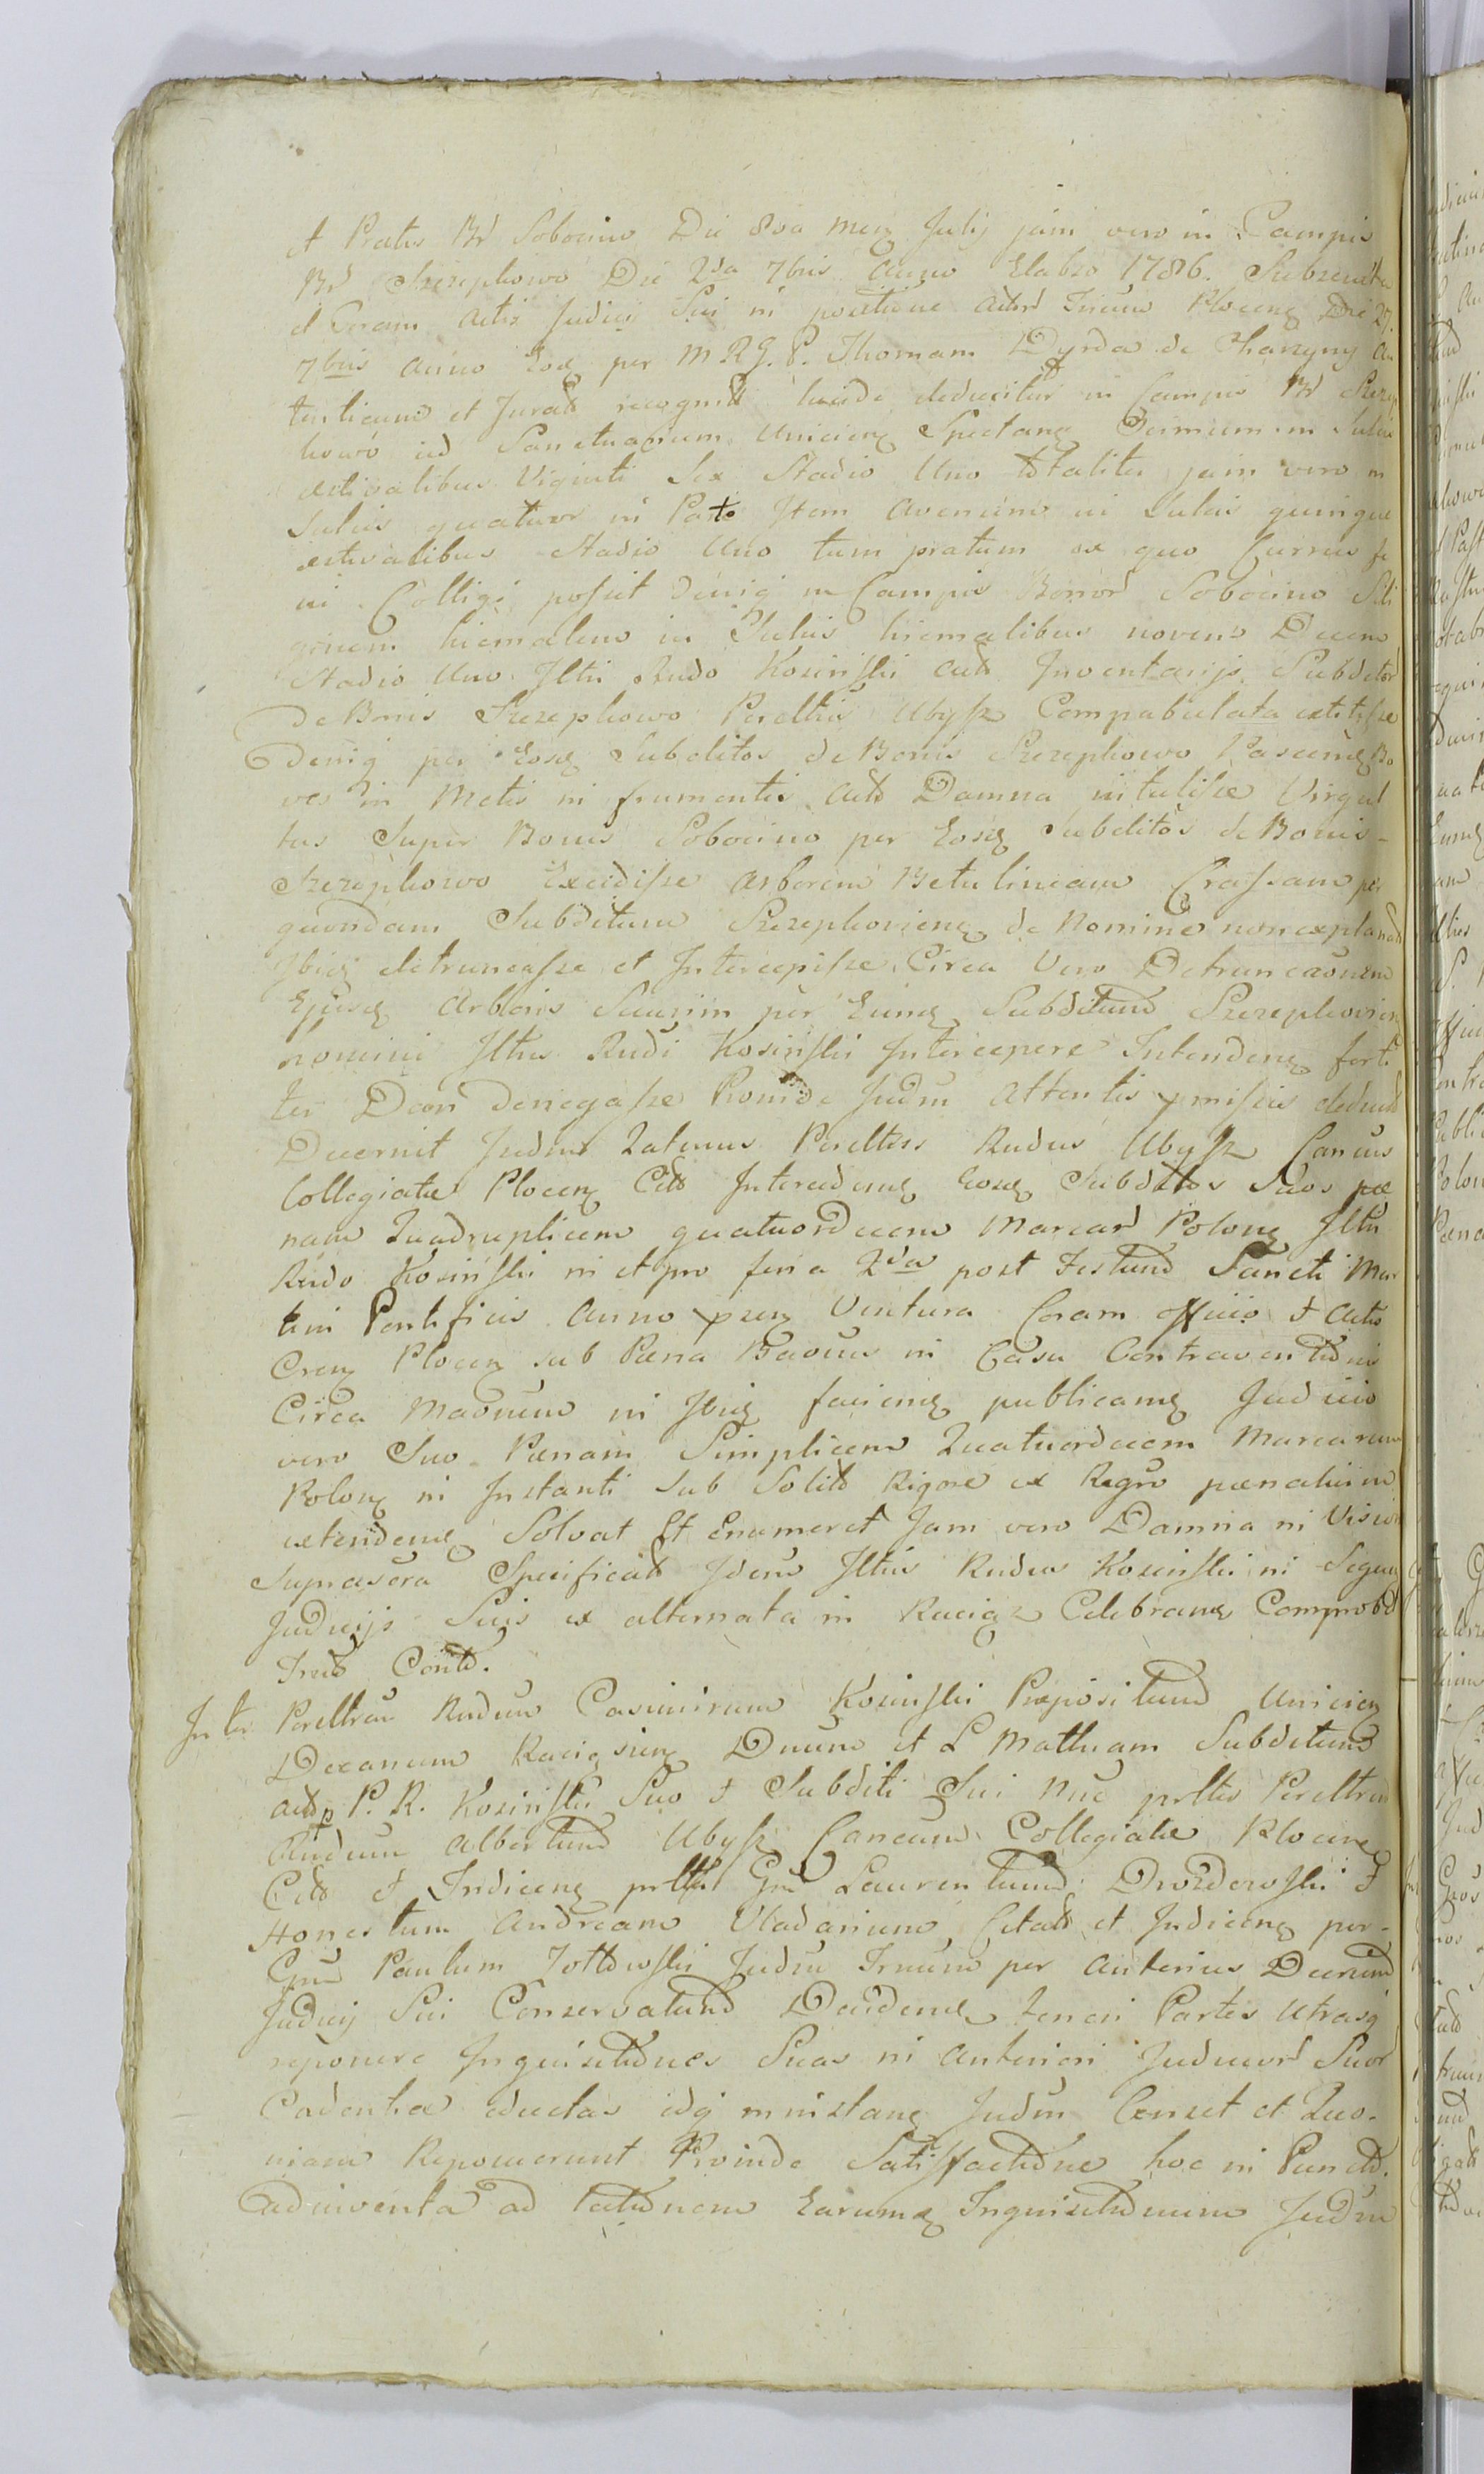 et Pratis Br Sobocino Die 8va mens Julij jam vero in Campis
Br Szczepkowo Die 2da 7bris Anno Elabso 1786. Subsecuta
et coram Actis Judicij Sui in positione Actor Plocen Die 27.
7bris Anno Eod per M R G. P. Thomam Dyrda de Charzyny Au
tenticum et Jurat recognit lucide deducitur in Campis Br Szczep
kowo ad Sanctuarium Uniecien Spectan in Sulcis
aestivalibus Viginti Sex Stadio Uno totaliter jam vero in
Sulcis quatuor in Parte Item Avenam in Sulcis quinque
aestivalibus Stadio Uno tum pratum ex quo Currus fe
ni Colligi possit Deniq in Campis Bonor Sobocino Sili
ginem hiemalem in Sulcis hiemalibus novem Decem
Stadio Uno Iltri Rudo Kosinski Act Inventarijs Subditor
De Bonis Szczepkowo Pereltris Ubysz Compabulata extitisse
Deniq per Eosq Subditos de Bonis Szczepkowo Pascen Bo
ves in Metis in frumentis Act Damna intulisse Virgul
tas Super Bonis Sobocino per Eosq Subditos de Bonis
Szczepkowo Excidisse Arborem Betulineam Crassam per
quendam Subditum Szczepkovien de Nomine non explanat
Ibiq detruncasse et Intercepisse. Circa Vero Detruncaonem
Ejusq Arboris Securim per Eunq Subditum Szczepkovien
nomine Iltris Rudi Kosinski Intercepere Intenden forti
ter Deon Denegasse Proinde Judm Attentis pmissis deduct
Decernit Judm Quatenus Pereltris Rudus Ubysz Canus
Collegiatae Plocen Citt Interceden Eosq Subditos Suos poe
nam Quadruplicem quatuordecem Marcar Polon Iltri
Rudo Kosinski in et pro feria 2da post Festum Sancti Mar
tini Pontificis Anno psen Ventura Coram Officio et Actis
Cren Plocen sub Poena Baonis in Casu Contraventionis
Circa Maonem in Ibiq facien publicam Judicio
vero Suo Poenam Simplicem Quatuordecem Marcarum
Polon in Instanti sub Solit Rigore ex Regro poenalium
extenden Solvat Et Enumeret Jam vero Damna in Visione
Suprascra Specificat Idem Iltris Rudus Kosinski in Sequen
Judicijs Suis ex alternata in Raciąz Celebran Comprobet
Conto.
Inter Pereltrem Rudum Casimirum Kosinski Praepositum Uniecien
Decanum Raciązien Dnum et L Mathiam Subditum
act p P. R. Kosinski Suo et Subditi Sui Nne prltes Pereltrem
Rudum Albertum Ubysz Canonum Collegiatae Plocen
Citt et Indicen Gnm Laurentium Drozdowski et
Honestum Andream Vladarium Citat et Indicen per
Gnm Paulum Zottowski Judm per Anterius Decretum
Judicij Sui Conservatum Deciden teneri Partes Utrasq
reponere Inquisitiones Suas in Anteriori Judicior Suor
Cadentia eductas idq in nistan Judm Censet et Quo
niam Reposuerunt Proinde Satisfactione hoc in Puncto
adinventa ad lectionem Earumq Inquisitionum Judm